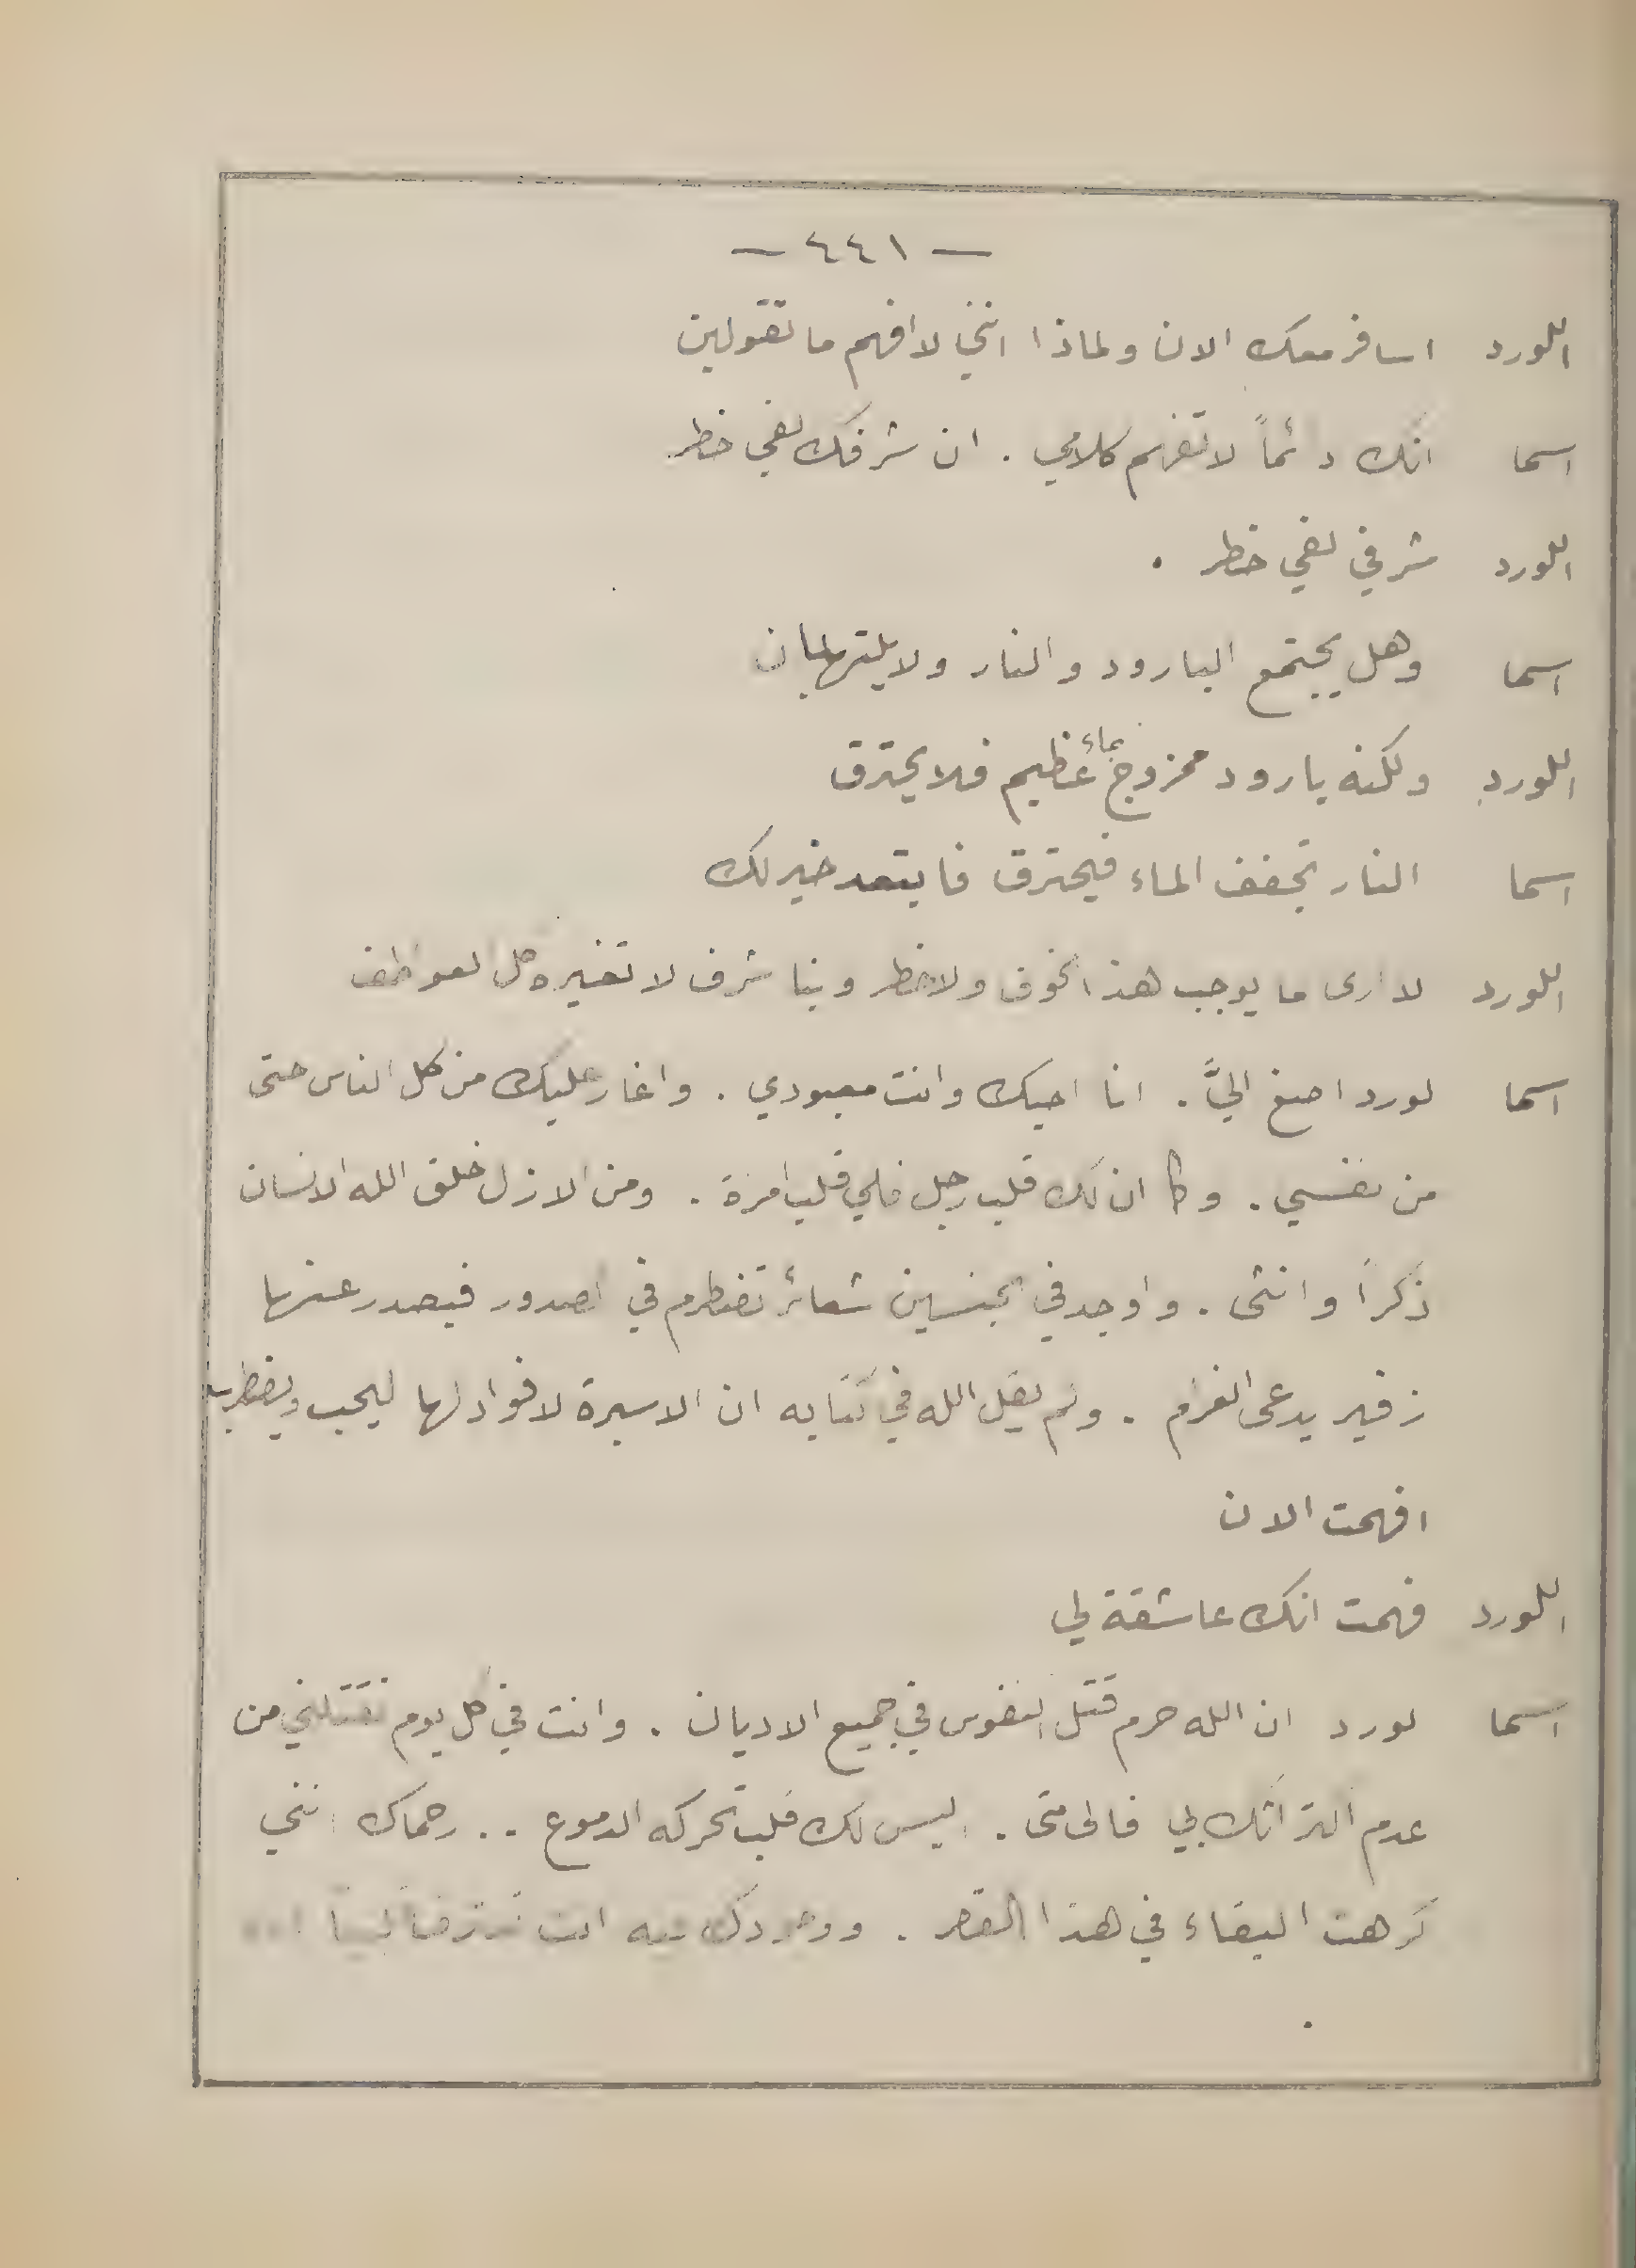 — ٤٤١ —
اللورد اسافر معك الان ولماذا انني لا افهم ما تقولين
اسما انك دائماً لا تفهم كلامي . ان شرفك لفي خطر
اللورد شرفي لفي خطر .
اسما وهل يجتمع البارود والنار ولا يلتهبان
اللورد ولكنه بارود ممزوج بماء عظيم فلا يحترق
اسما النار تجفف الماء فيحترق فابتعد خير لك
اللورد لا ارى ما يوجب هذا الخوف ولا خطر وبنا شرف لا تغيره كل العواطف
اسما لورد اصغ اليَّ . انا احبك وانت معبودي . واغار عليك من كل الناس حتى
من نفسي . وكما ان لك قلب رجل فلي قلب امرة . ومن الازل خلق الله الانسان
ذكراً وانثى . واوجد في الجنسين شعائر تضطرم في الصدور فيصدر عنها
زفير يدعى الغرام . ولم يقل الله في كتابه ان الاسيرة لا فواد لها ليحب ويضطرب
افهمت الان
اللورد فهمت انك عاشقة لي
اسما لورد ان الله حرم قتل النفوس في جميع الاديان . وانت في كل يوم تقتلني من
عدم اكتراثك بي فالى متى . اليس لك قلب تحركه الدموع .. رحماك انني
كرهت البقاء في هذا القصر . ووجودك فيه انت